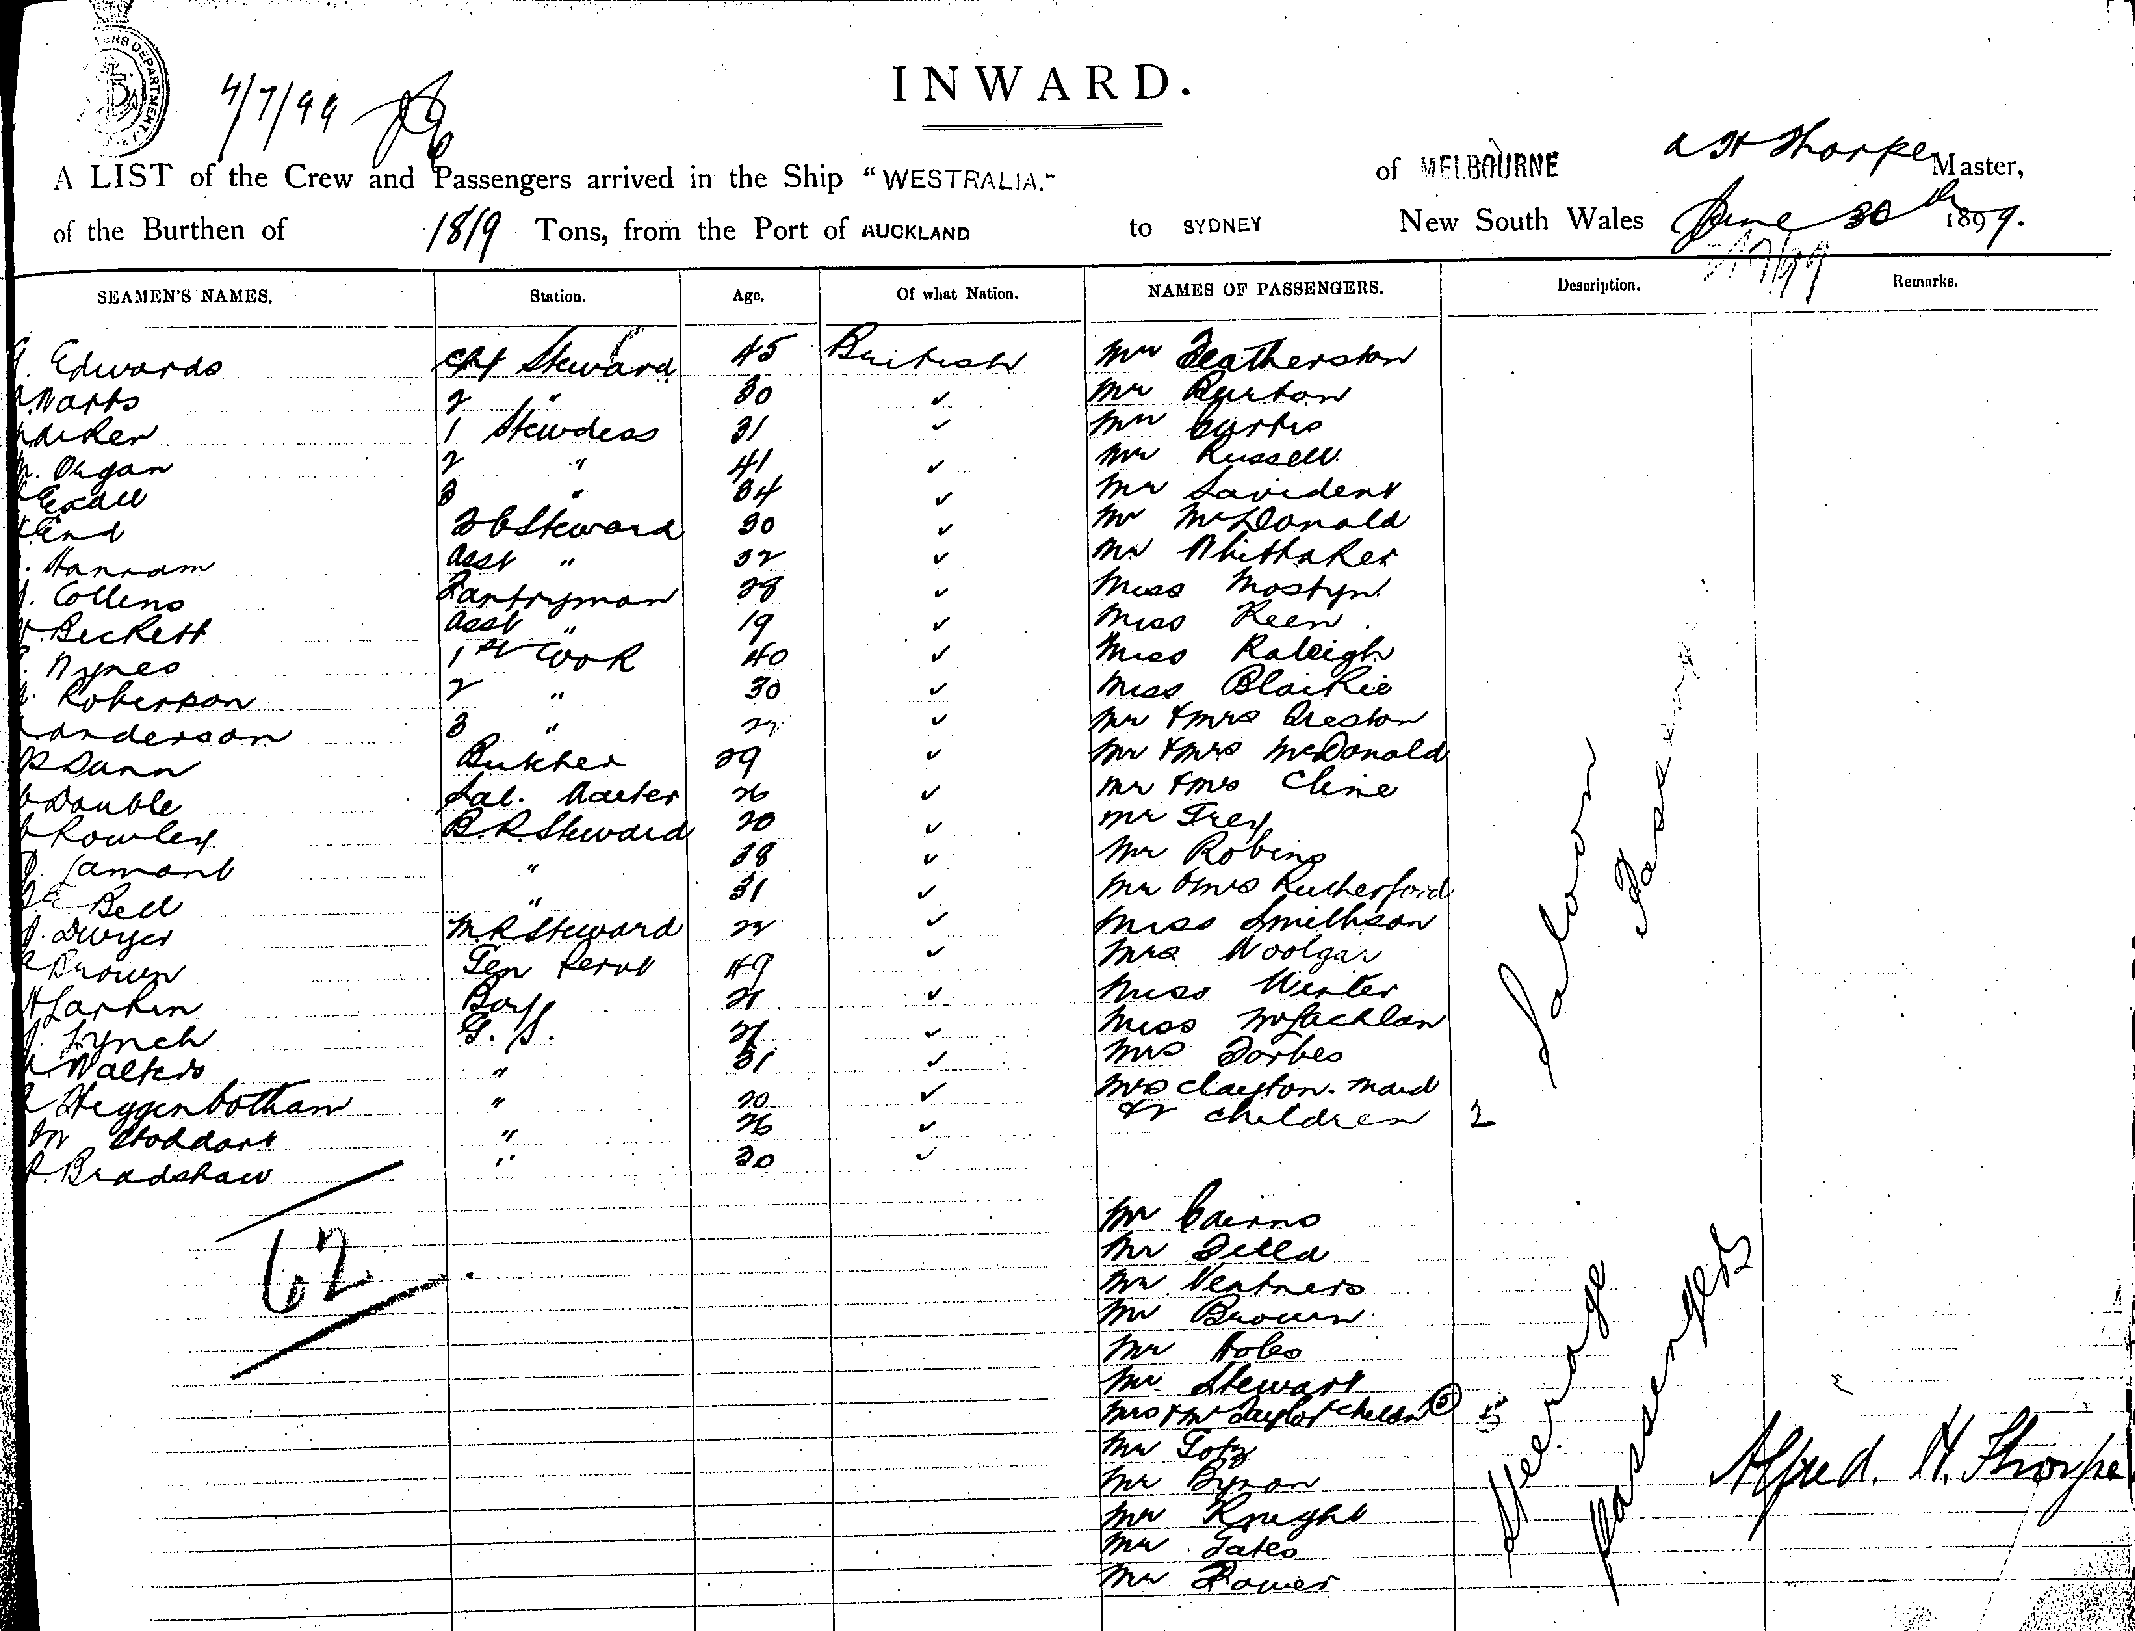 4/7/99
INWARD.
A LIST of the Crew and Passengers arrived in the Ship "WESTRALIA." of MELBOURNE A H Thorpe Master,
of the Burthen of 1819 Tons, from the Port of AUCKLAND to SYDNEY New South Wales June 30th 1899.
SEAMEN'S NAMES. Station. Age. Of what Nation. NAMES OF PASSENGERS. Description. Remarks.
Edwards Chf Steward 45 British Mr Featherston
Watts 2 " 30 ✓ Mr Burton
1 Stewdess 31 ✓ Mr Curtis
2 " 41 ✓ Mr Russell
3 " 34 ✓ Mr Savident
End 2 C Steward 30 ✓ Mr McDonald
Hannam Asst " 32 ✓ Mr Whittaker
J. Collins Pantryman 28 ✓ Miss Mostyn
Beckett Asst " 19 ✓ Miss Keen
Wynes 1st Cook 40 ✓ Miss Raleigh
Robertson 2 " 30 ✓ Miss Blaikie
Anderson 3 " ✓ Mr & Mrs Preston
Dunn Butcher 29 ✓ Mr & Mrs McDonald
Double Sal. Waiter 26 ✓ Mr & Mrs Cline
Rowley B.R. Steward 20 ✓ Mr Frey
J. Lamont " 38 ✓ Mr Robins
Bell " 31 ✓ Mr & Mrs Rutherford
J. Dwyer M.R Steward 22 ✓ Miss Smithson
Brown Gen Servt 49 ✓ Mrs Woolgar
H Larkin Boys 21 ✓ Miss Winter
J. Lynch G. S. 21 ✓ Miss McLachlan
Walters " 31 ✓ Mrs Forbes
Heggenbotham " 20 ✓ Mrs Clayton. Maid
Stoddart " 26 ✓ & 2 children 2
Bradshaw " 30 ✓
Saloon
Passengers
62
Mr Cairns
Mr
Mr Ventners
Mr Brown
Mr
Mr Stewart
Mrs & Mr Taylor & Childn 5 5
Mr
Mr Bynon
Mr Knight
Mr
Mr Power
Steerage
Passengers
Alfred. H. Thorpe